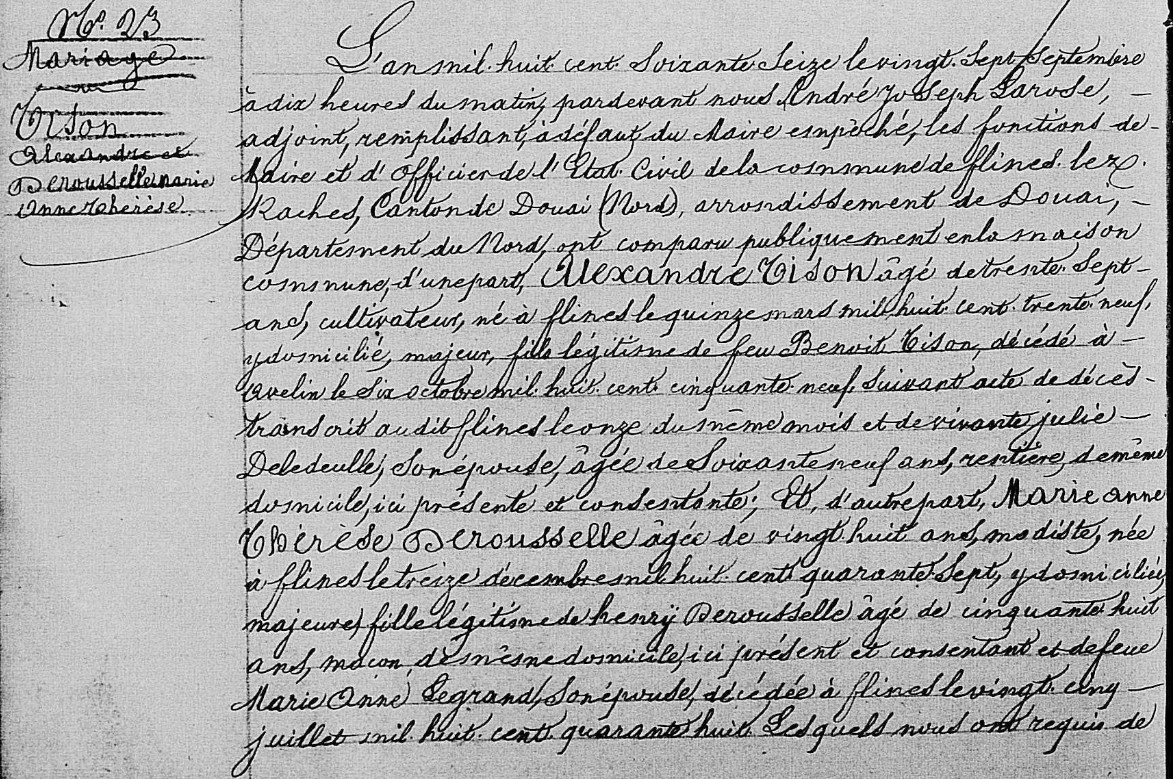 N° 23
Mariage
Tison
Alexandre et
Derousselle marie
Anne thérèse
L'an mil huit cent Soixante Seize le vingt Sept Septembre
à dix heures du matin, pardevant nous André Joseph Larose, —
adjoint, remplissant, à défaut du Maire empêché, les fonctions de -
Maire et d'Officier de l'Etat Civil de la commune de flines lez
Raches, Canton de Douai (Nord), arrondissement de Douai, -
Département du Nord, ont comparu publiquement en la maison
commune, d'une part, Alexandre Tison âgé de trente Sept -
ans, cultivateur, né à flines le quinze mars mil huit cent trente neuf,
y domicilié, majeur, fils légitime de feu Benoit Tison, décédé à -
Avelin le Six octobre mil huit cent cinquante neuf, Suivant acte de décès -
transcrit audit flines le onze du même mois et de vivante julie —
Deledeulle, Son épouse, âgée de Soixante neuf ans, rentière, de même
domicile, ici présente et consentante; Et, d'autre part, Marie anne
Thérèse Derousselle âgée de vingt huit ans, modiste, née
à flines le treize décembre mil huit cent quarante Sept, y domiciliée,
majeure, fille légitime de henry Derousselle âgé de cinquante huit
ans, maçon de même domicile, ici présent et consentant et de feue
Marie Anne Legrand, Son épouse, décédée à flines le vingt cinq —
juillet mil huit cent quarante huit Lesquels nous ont requis de